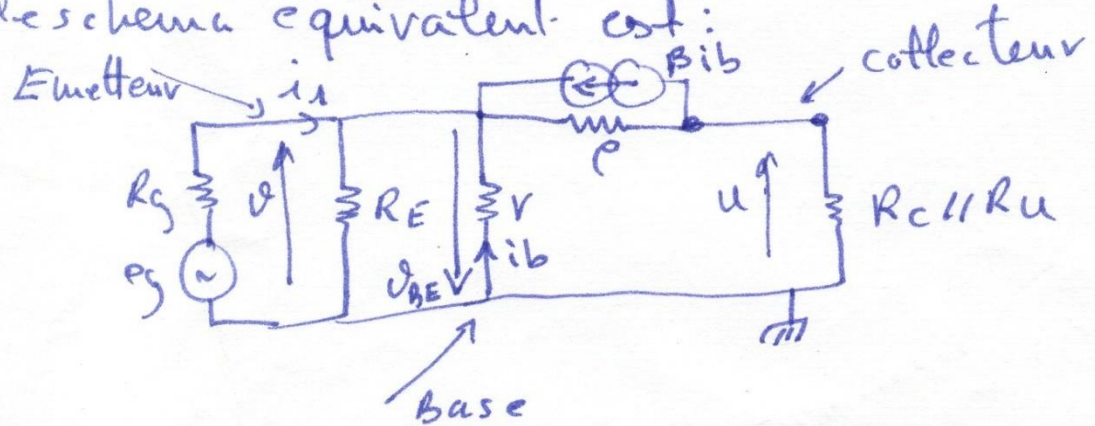 le schema equivalent est :
Emetteur
i1
Bib
collecteur
Rg
v
RE
vBE
r
ib
ρ
u
Rc // Ru
eg
~
Base